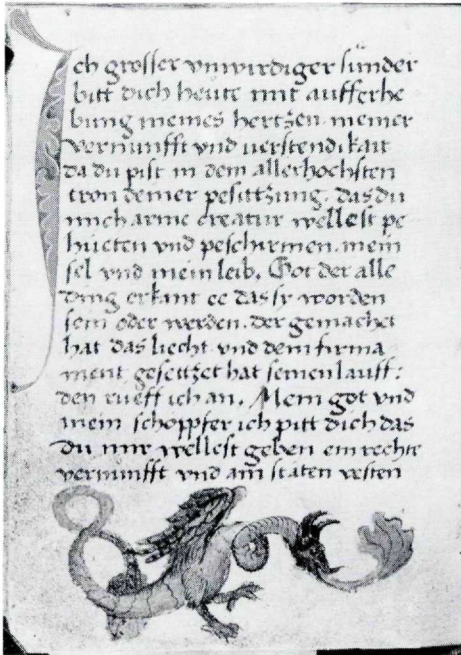 Ich grosser vnwirdiger sünder
bitt dich heute mit aufferhe
bung meines hertzen meiner
vernunfft vnd verstendikait
da du pist in dem allerhochsten
tron deiner pesitzung. das du
mich arme creatur wellest pe
hüeten vnd peschirmen. mein
sel vnd mein leib. Got der alle
ding erkant ee das sy worden
sein oder werden. der gemachet
hat das liecht vnd dem firma
ment gesetzet hat seinen lauff:
den rueff ich an. Mein got vnd
mein schöppfer ich pitt dich das
du mir wellest geben ein rechte
vernunfft vnd ain stäten vesten